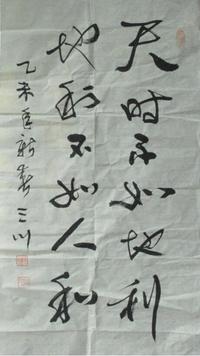 天时不如地利
地利不如人和
乙未年新春 三川